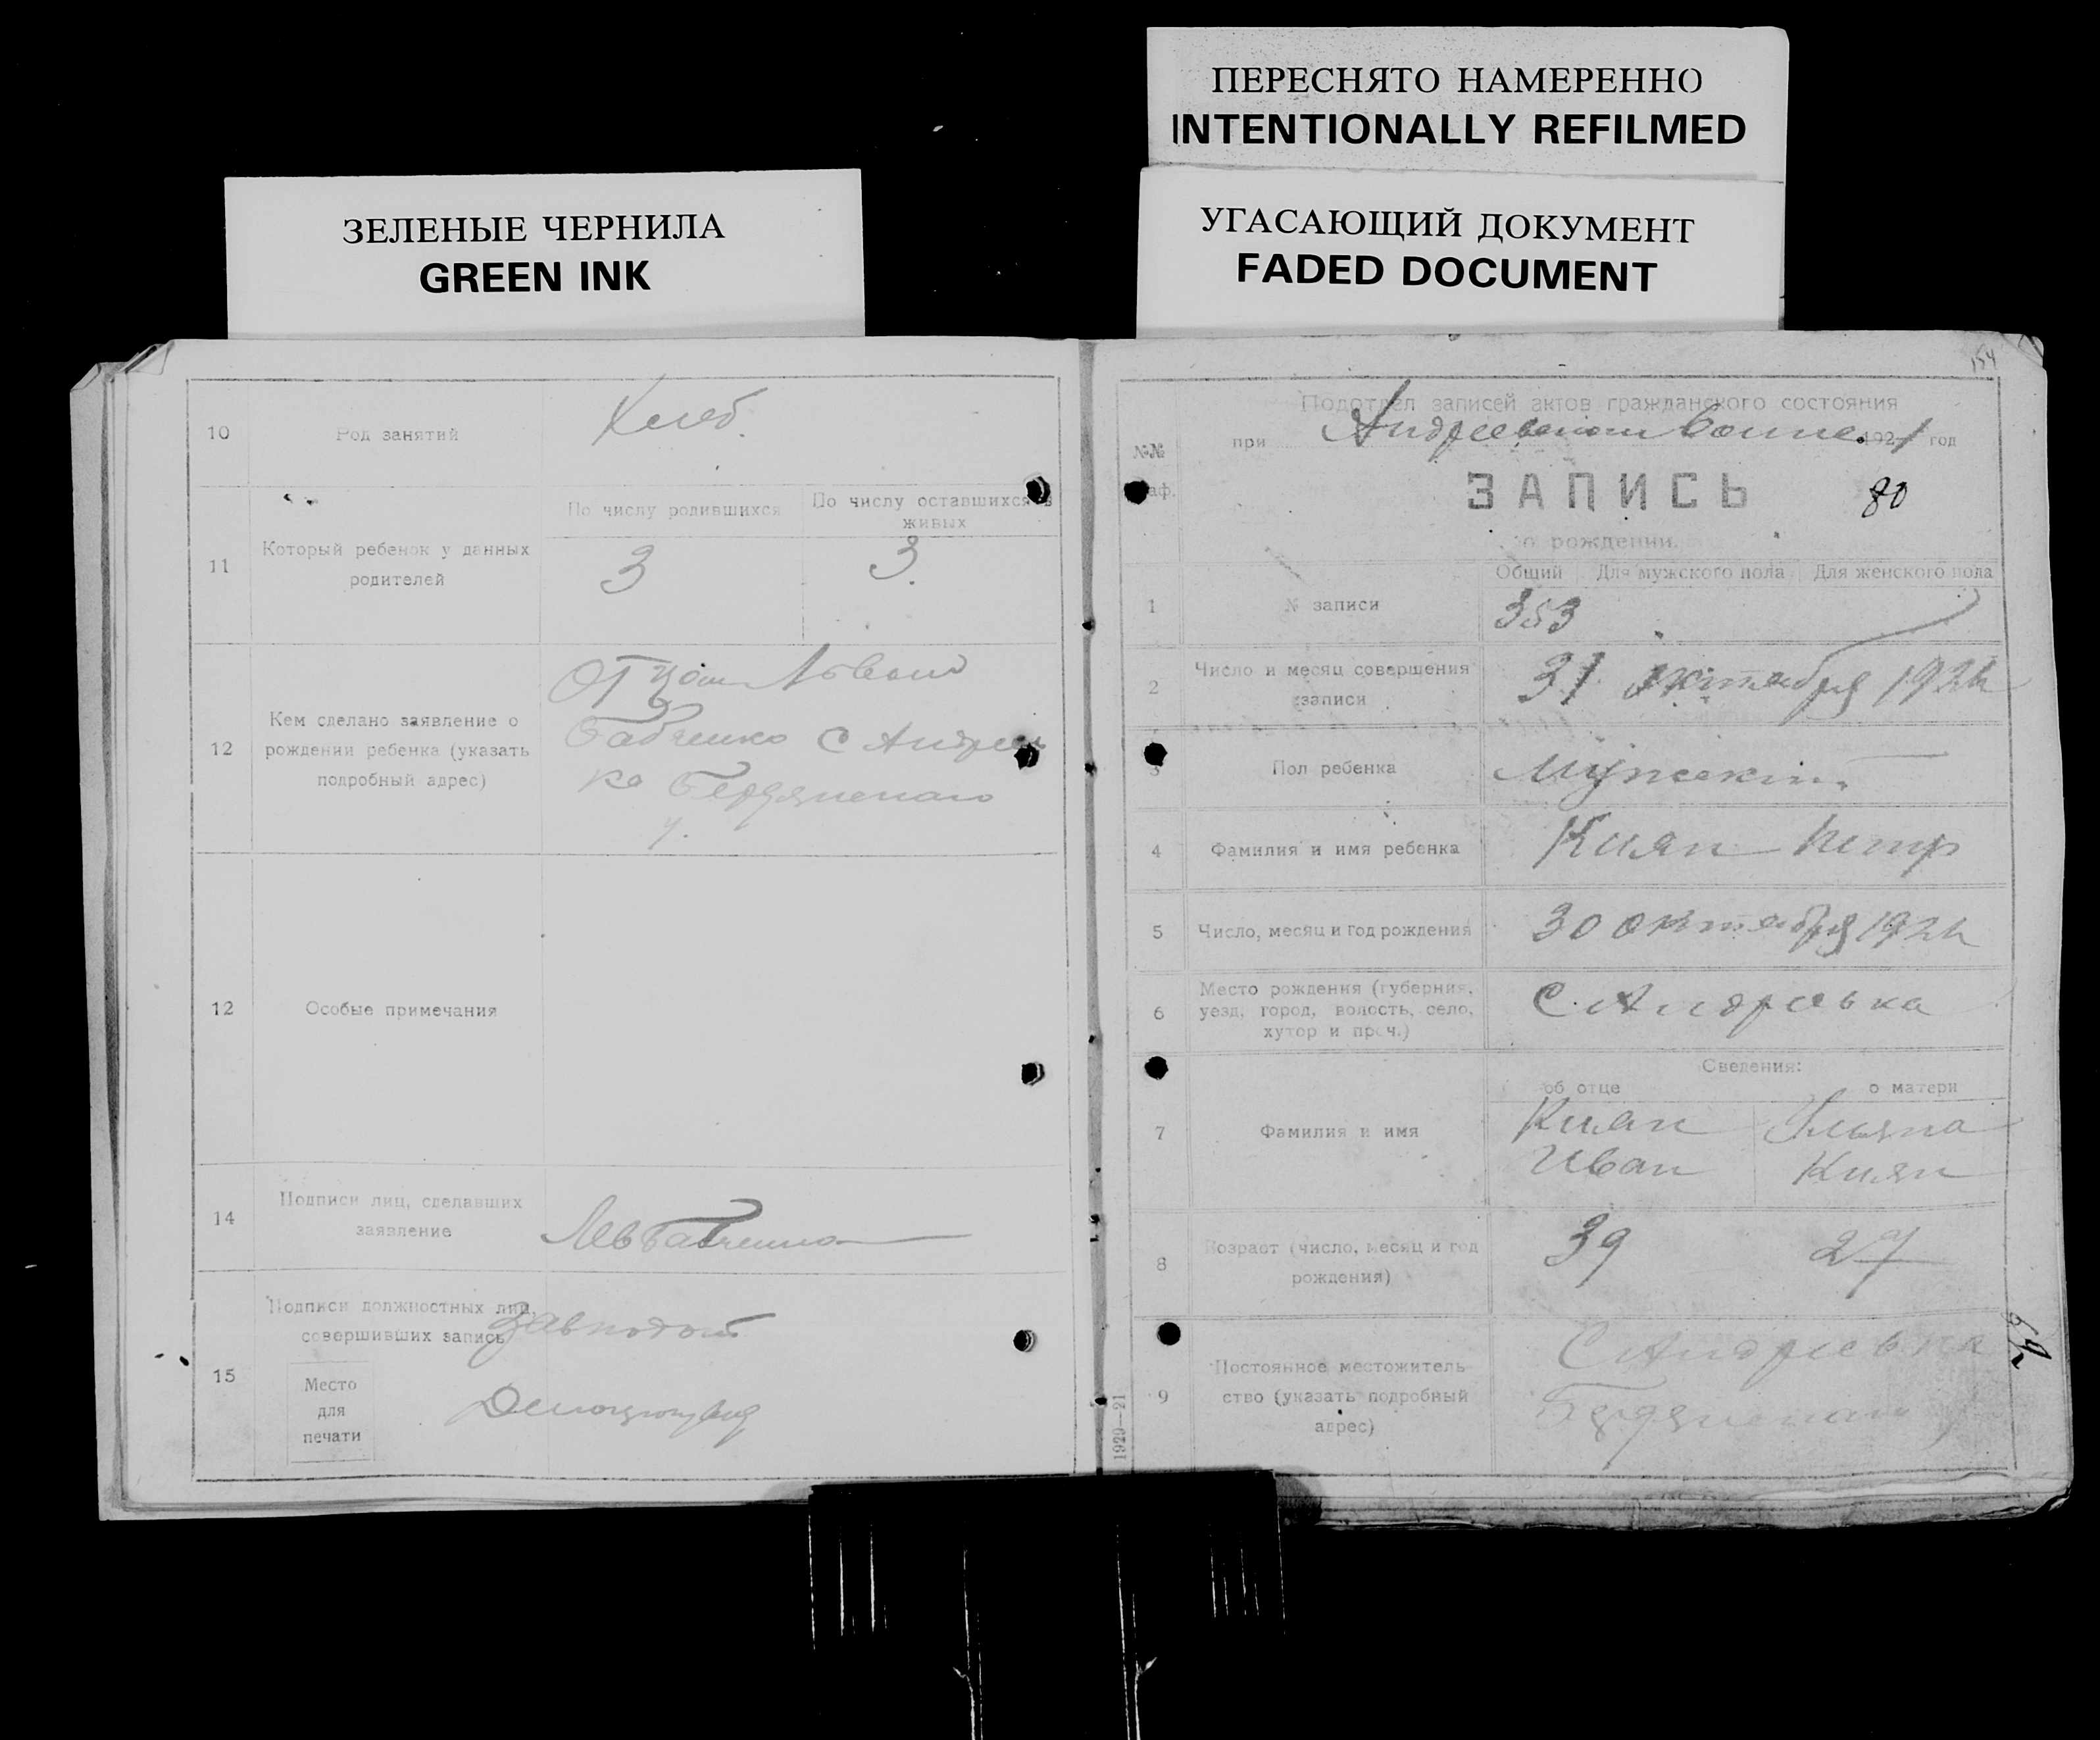 ПЕРЕСНЯТО НАМЕРЕННО
INTENTIONALLY REFILMED
ЗЕЛЕНЫЕ ЧЕРНИЛА
GREEN INK
УГАСАЮЩИЙ ДОКУМЕНТ
FADED DOCUMENT
10 Род занятий Хлеб.
11 Который ребенок у данных родителей
По числу родившихся
По числу оставшихся в живых
3 3.
12 Кем сделано заявление о рождении ребенка (указать подробный адрес)
Отцом Львом
Бабченко с Андреев
ка Бердянского
у.
12 Особые примечания
14 Подписи лиц, сделавших заявление
Лев Бабченко
15 Подписи должностных лиц, совершивших запись
Завподот
Место
для
печати
154
Подотдел записей актов гражданского состояния
при Андреевском 1921 год
№№
граф.
ЗАПИСЬ 80
о рождении.
Общий Для мужского пола Для женского пола
1 № записи 353
2 Число и месяц совершения записи 31 октября 1921
3 Пол ребенка Мужской
4 Фамилия и имя ребенка Киян Петр
5 Число, месяц и год рождения 30 октября 1921
6 Место рождения (губерния, уезд, город, волость, село, хутор и проч.) С. Андреевка
Сведения:
об отце о матери
7 Фамилия и имя
Киян Ульяна
Иван Киян
8 Возраст (число, месяц и год рождения) 39 27
9 Постоянное местожительство (указать подробный адрес)
С Андреевка
Бердянского у
1920—21